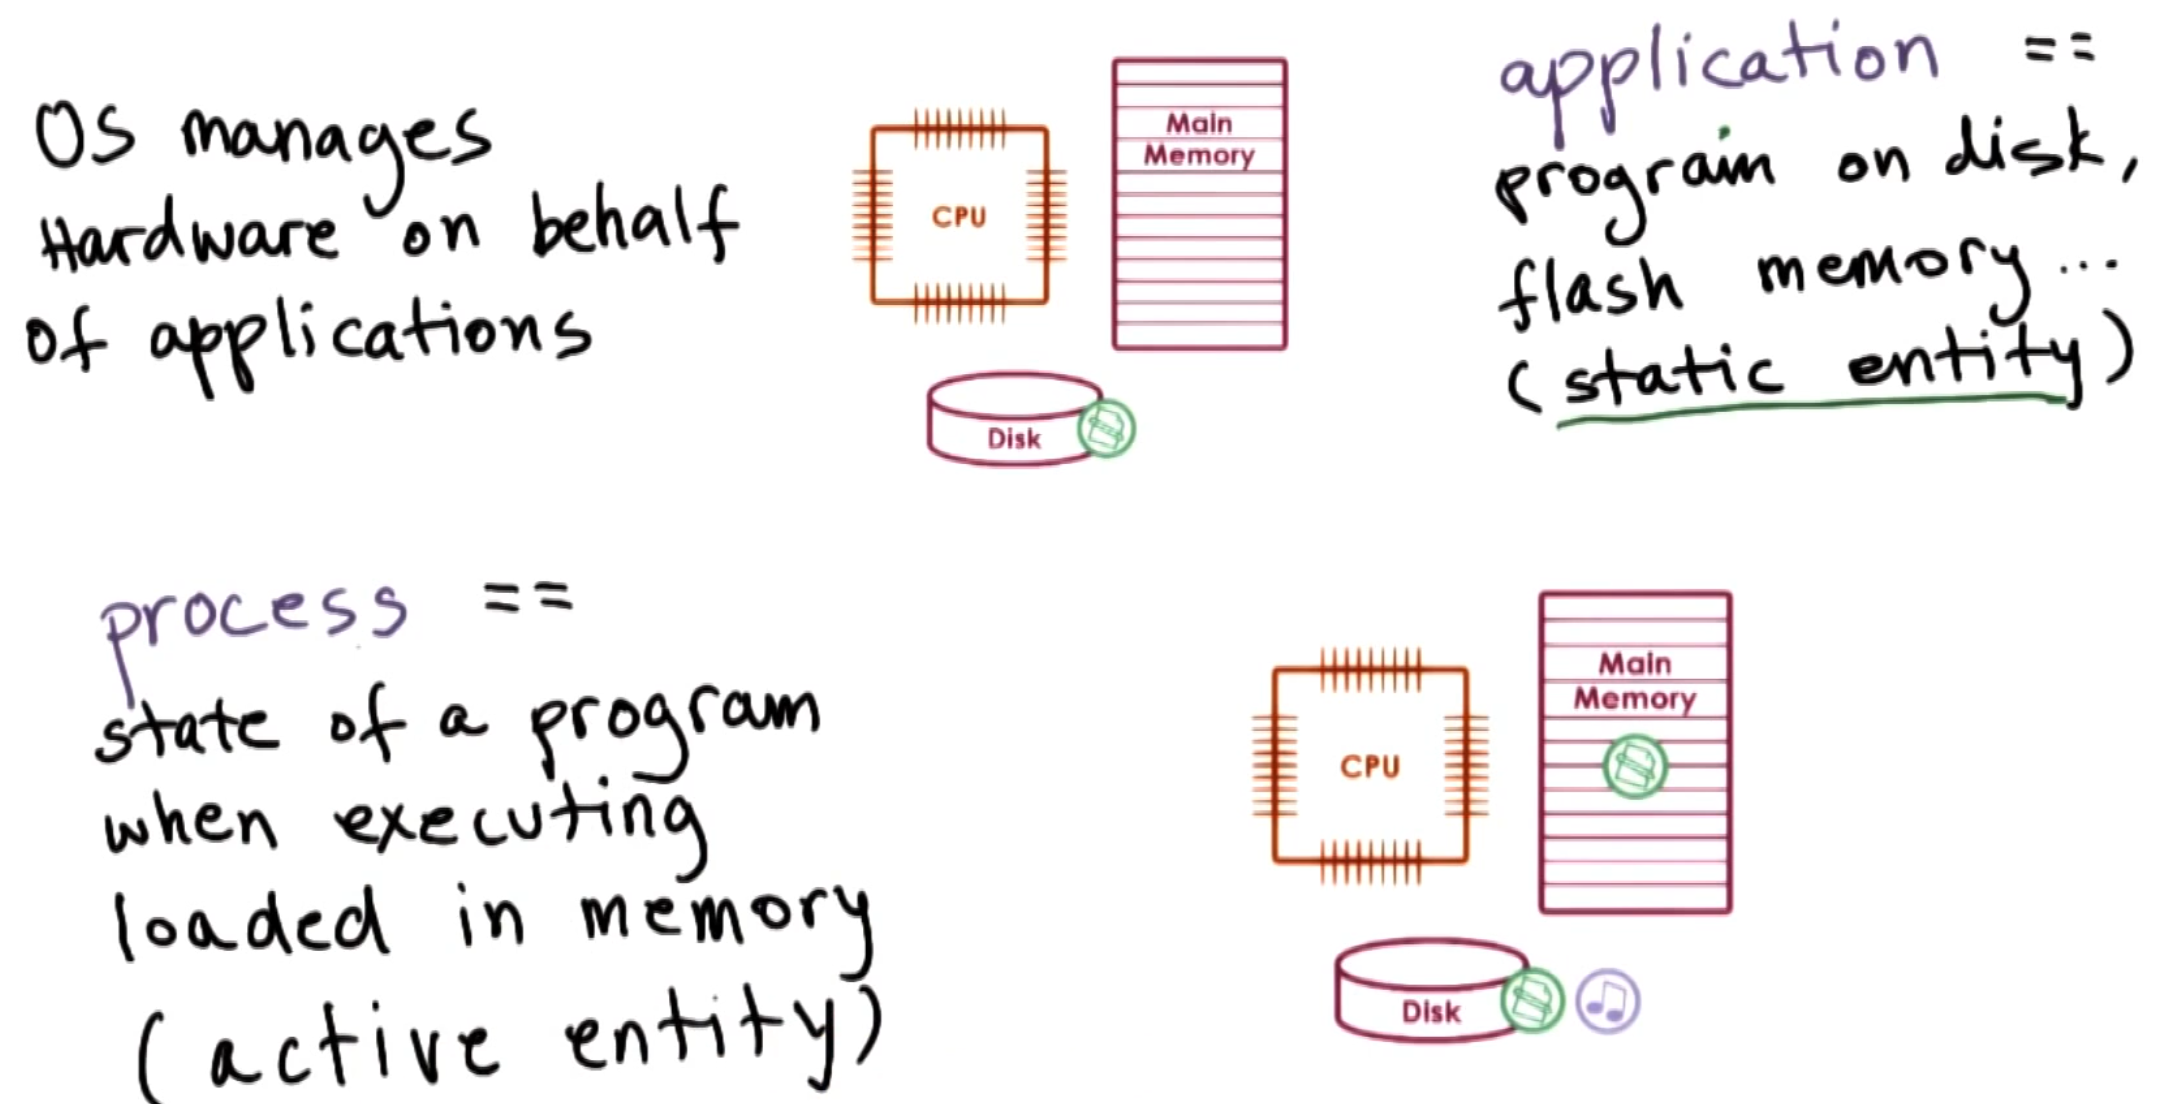 OS manages
Hardware on behalf
of applications
CPU
Main
Memory
Disk
application ==
program on disk,
flash memory...
(static entity)
process ==
state of a program
when executing
loaded in memory
(active entity)
CPU
Main
Memory
Disk